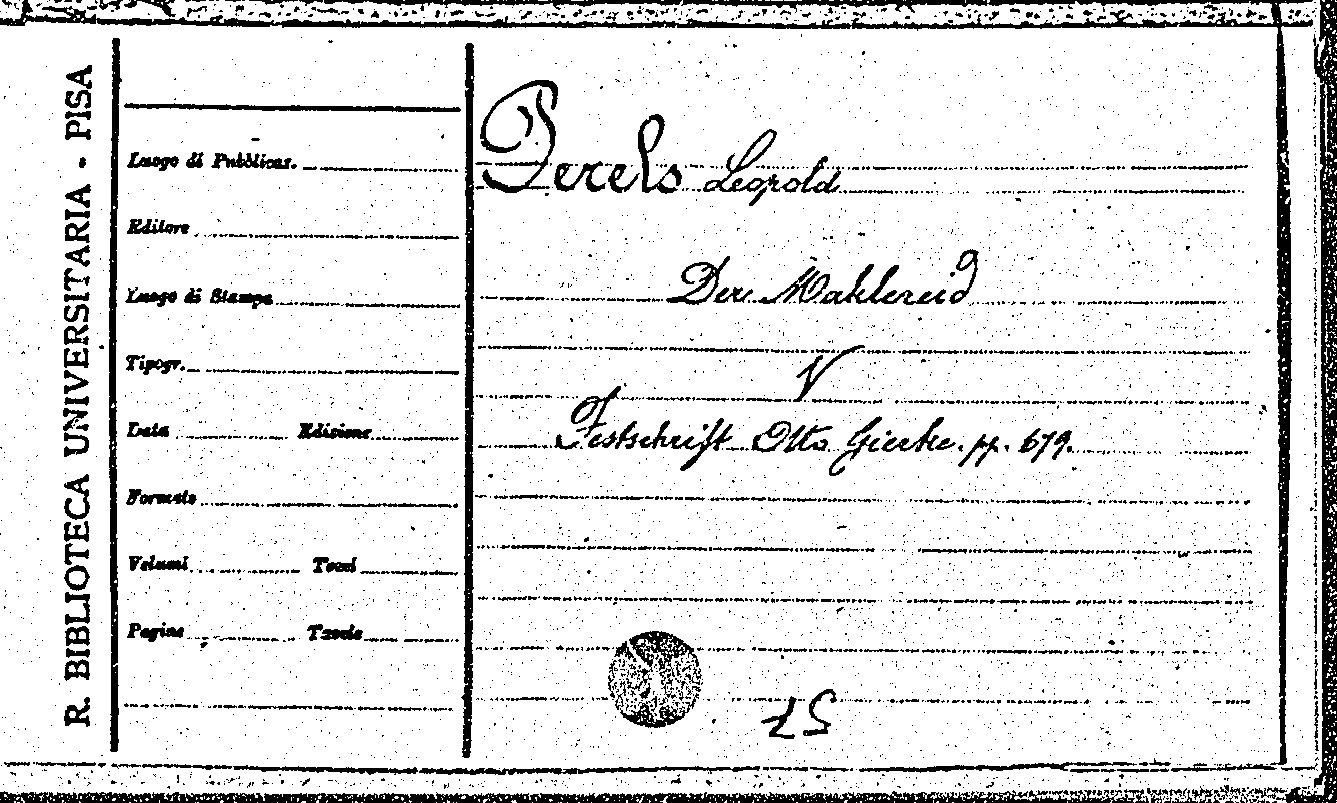 R. BIBLIOTECA UNIVERSITARIA - PISA
Luogo di Pubblicaz.
Editore
Luogo di Stampa
Tipogr.
Data Edizione
Formato
Volumi Tomi
Pagine Tavole
Perels Leopold
Der Maklereid
V
Festschrift Otto Gierke. pp. 679.